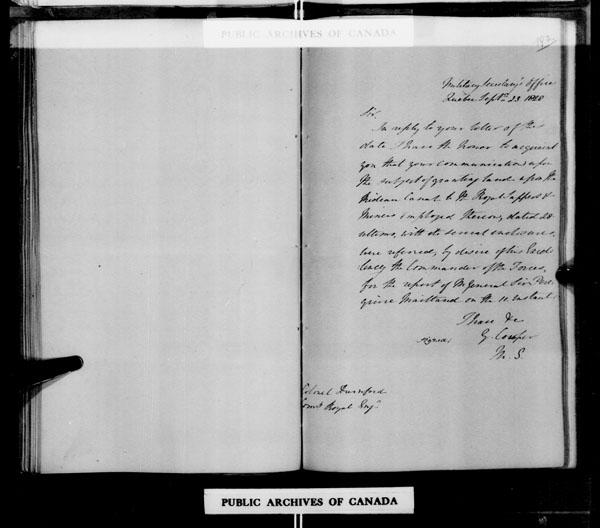 PUBLIC ARCHIVES OF CANADA
187
Military Secretary's Office
Quebec Septr. 23. 1828
Sir,
In reply to your letter of this
date I have the honor to acquaint
you that your communication upon
the subject of granting land upon the
Rideau Canal to the Royal Sappers &
Miners employed thereon, dated 28
ultimo, with its several enclosures,
were referred, by desire of His Excel-
lency the Commander of the Forces,
for the report of M General Sir Pere-
grine Maitland on the 11 instant.
I have &c
signed, G. Couper
M. S.
Colonel Durnford
Comg Royal Engrs
PUBLIC ARCHIVES OF CANADA